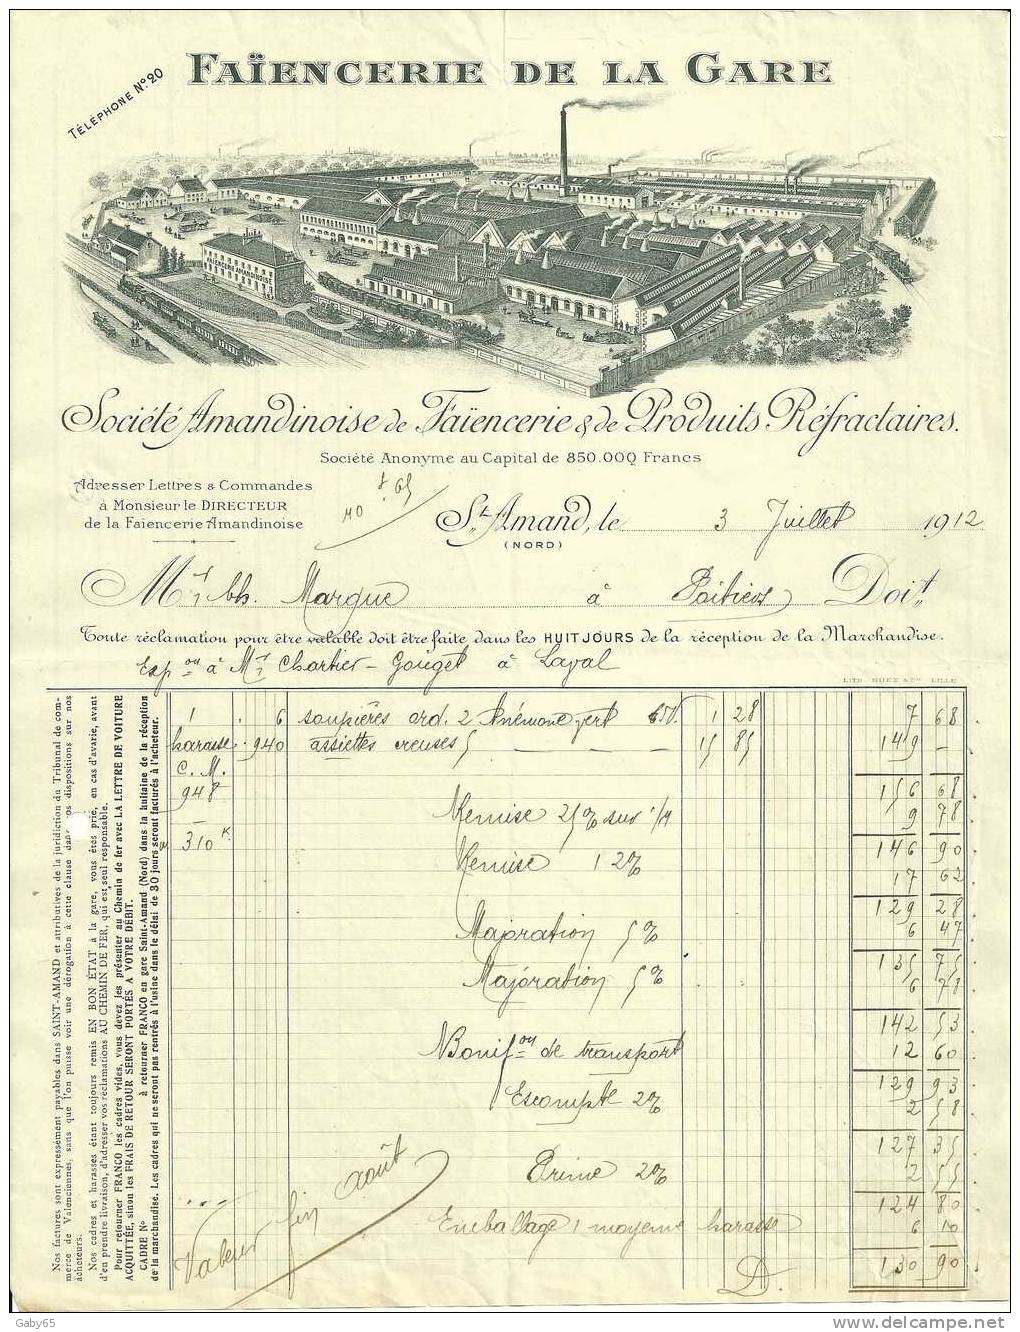 TÉLÉPHONE No. 20
FAÏENCERIE DE LA GARE
FAÏENCERIE AMANDINOISE
Société Amandinoise de Faïencerie & de Produits Réfractaires.
Société Anonyme au Capital de 850.000 Francs
Adresser Lettres & Commandes
à Monsieur le DIRECTEUR
de la Faïencerie Amandinoise
St. Amand, le 3 Juillet 1912
(NORD)
Mr Ch. Margue à Poitiers Doit
Toute réclamation pour être valable doit être faite dans les HUIT JOURS de la réception de la Marchandise.
Expon à Mr Chartier-Gouget à Laval
LITH. LILLE
1 6 soupières ord. 2 Anémone vert 1 28 7 68
harasse 940 assiettes creuses 15 85 149 —
C. M.
948 156 68
Remise 25% sur 9 78
310 K 146 90
Remise 12% 17 62
129 28
Majoration 5% 6 47
135 75
Majoration 5% 6 78
142 53
Bonifon de transport 12 60
129 93
Escompte 2% 2 58
127 35
Prime 2% 2 55
124 80
Emballage 1 moyenne harasse 6 10
130 90
Valeur fin août
Nos factures sont expressément payables dans SAINT-AMAND et attributives de la juridiction du Tribunal de com-
merce de Valenciennes, sans que l'on puisse voir une dérogation à cette clause dans nos dispositions sur nos
acheteurs.
Nos cadres et harasses étant toujours remis EN BON ÉTAT à la gare, vous êtes prié, en cas d'avarie, avant
d'en prendre livraison, d'adresser vos réclamations AU CHEMIN DE FER, qui est seul responsable.
Pour retourner FRANCO les cadres vides, vous devez les présenter au Chemin de fer avec LA LETTRE DE VOITURE
ACQUITTÉE, sinon les FRAIS DE RETOUR SERONT PORTÉS A VOTRE DÉBIT.
CADRE No à retourner FRANCO en gare Saint-Amand (Nord) dans la huitaine de la réception
de la marchandise. Les cadres qui ne seront pas rentrés à l'usine dans le délai de 30 jours seront facturés à l'acheteur.
Gaby65
www.delcampe.net